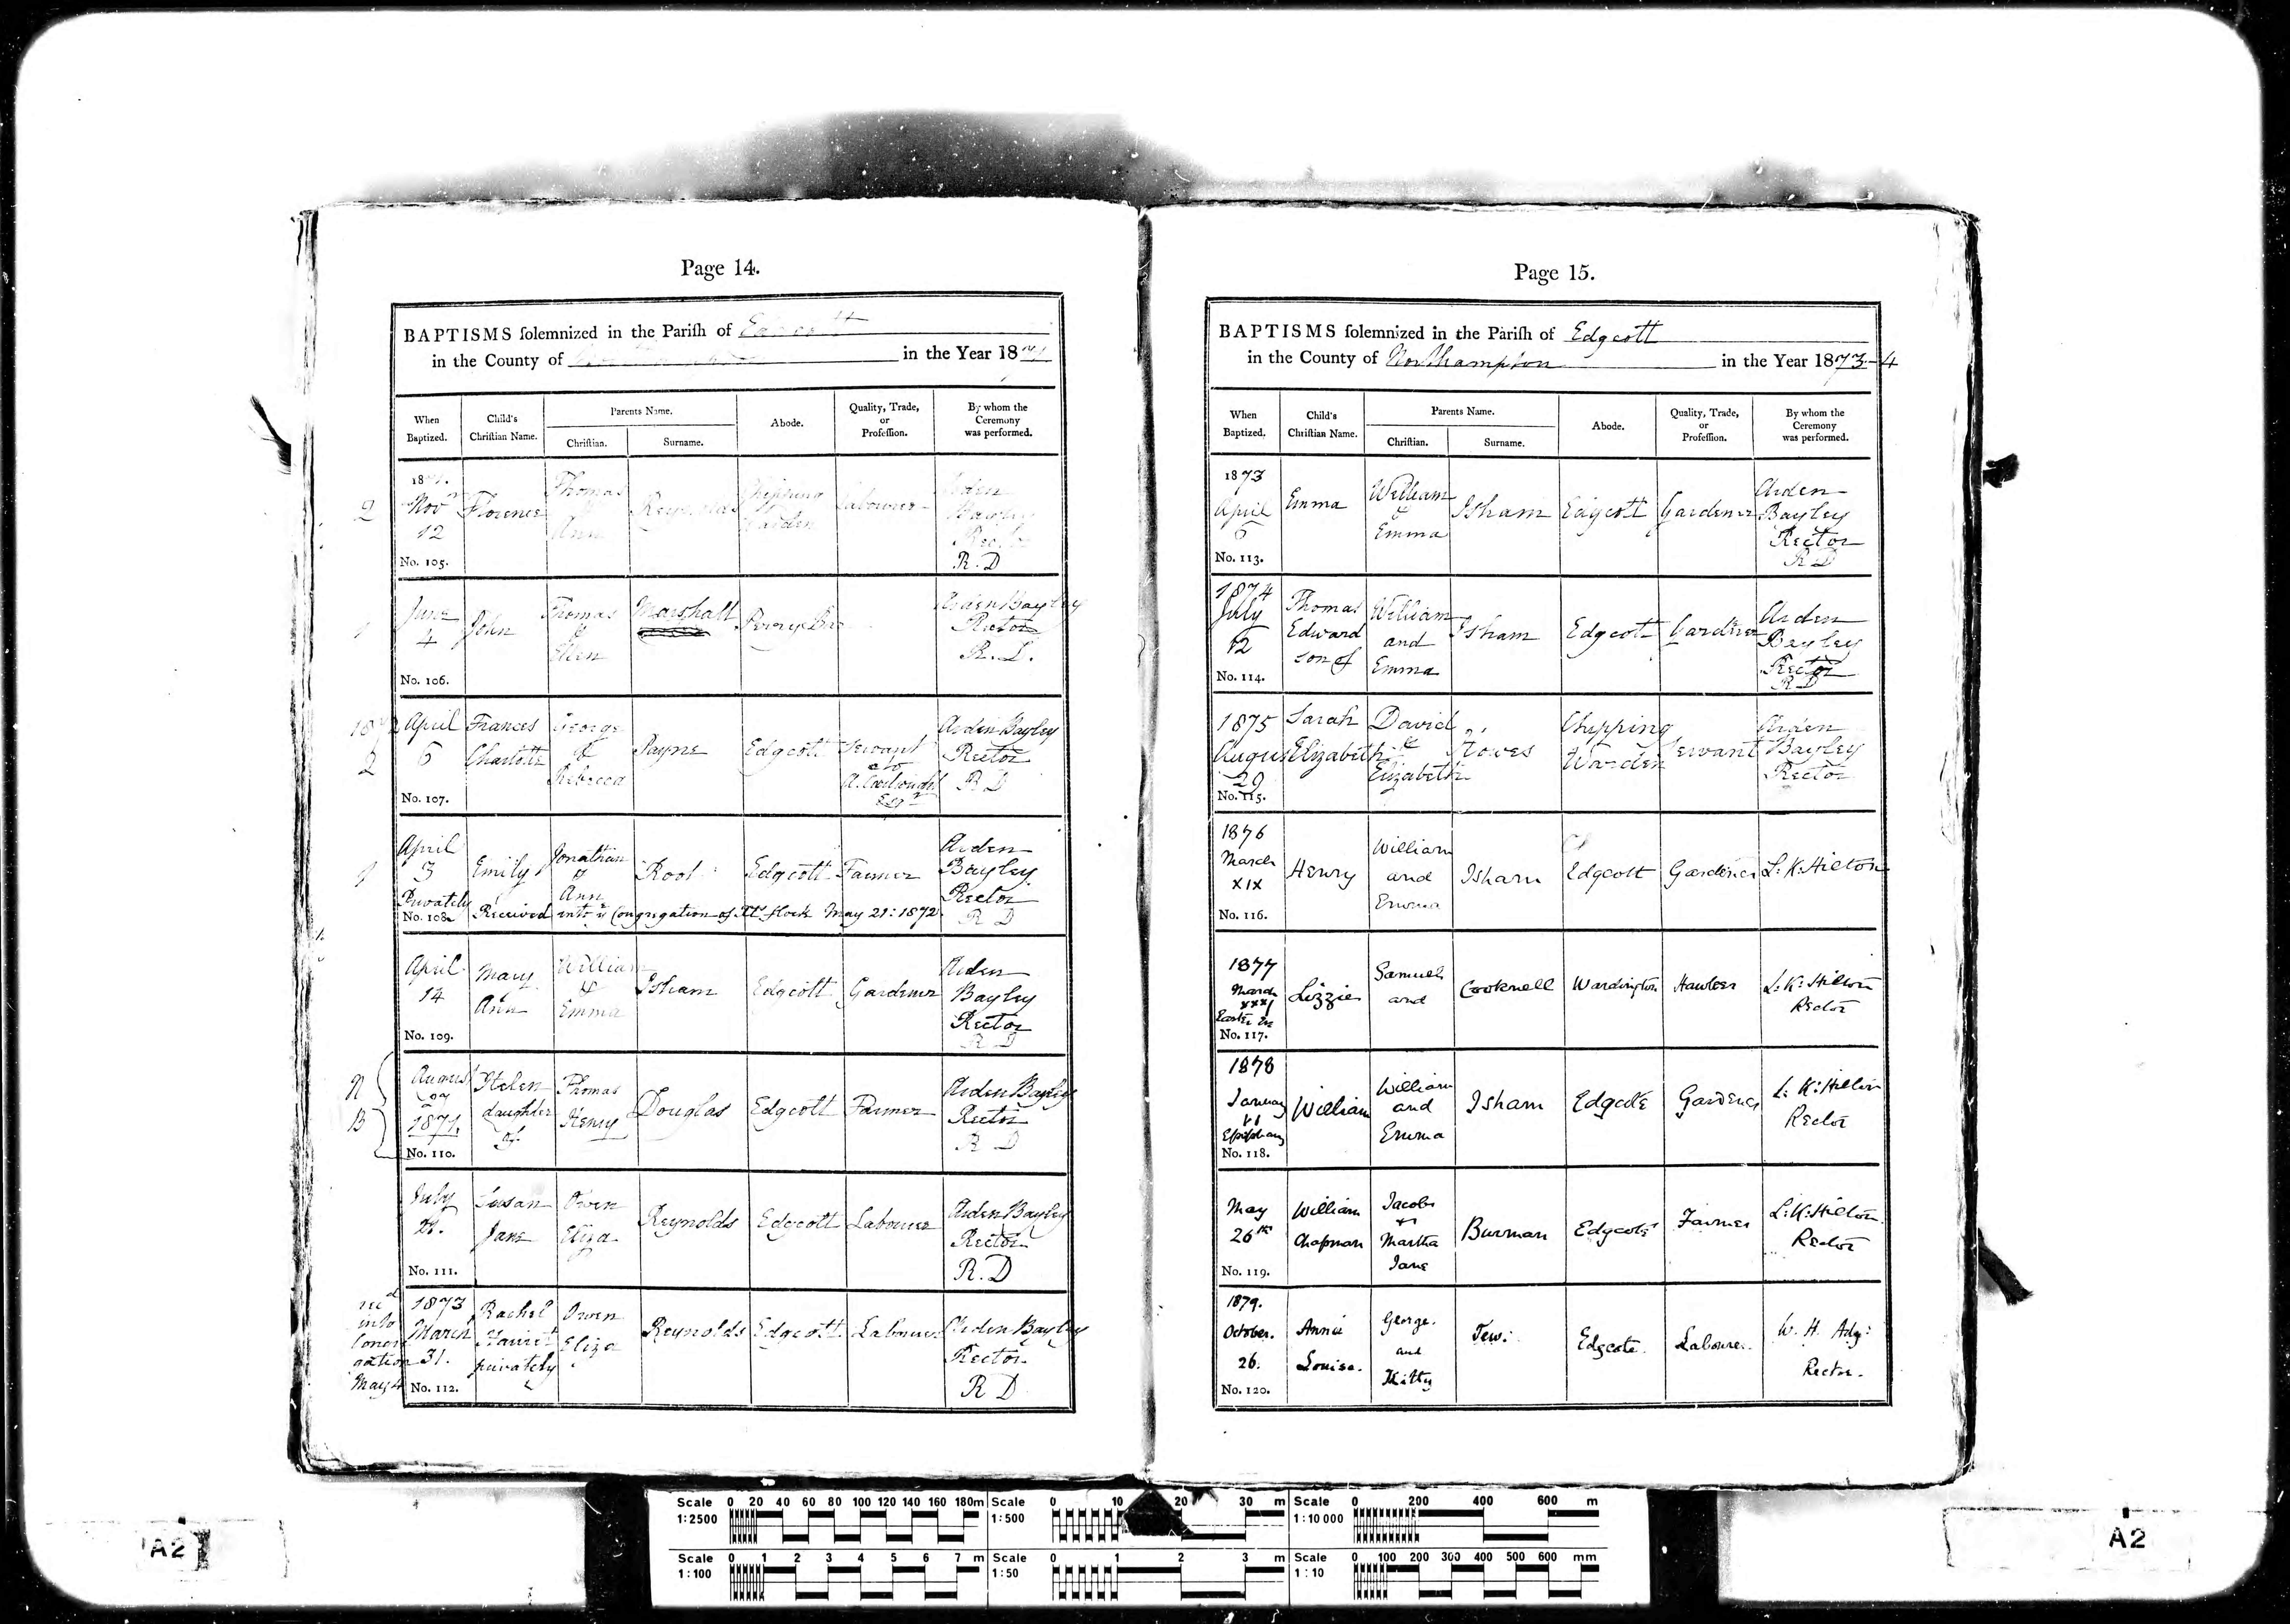 Page 14.
BAPTISMS solemnized in the Parish of Edgcott
in the County of in the Year 1871
When Baptized.
Child's Christian Name.
Parents Name.
Christian.
Surname.
Abode.
Quality, Trade, or Profession.
By whom the Ceremony was performed.
1871.
Nov
12
No. 105.
Florence
Thomas
&
Ann
Reynolds
Chipping
Warden
Labourer
Arden
Bayley
Rector
R. D
2
June
4
No. 106.
John
Thomas
&
Ellen
Marshall
Arden Bayley
Rector
1
1872
2
April
6
No. 107.
Frances
Charlotte
George
&
Rebecca
Payne
Edgcott
Servant
to
A. Cartwright
Esqr
Arden Bayley
Rector
R D
1
April
3
Privately
No. 108.
Emily
Jonathan
&
Ann
Root
Edgcott
Farmer
Arden
Bayley
Rector
R D
Received into Congregation of flock May 21: 1872
April
14
No. 109.
Mary
Ann
William
&
Emma
Isham
Edgcott
Gardener
Arden
Bayley
Rector
R D
N
B
August
27
1871.
No. 110.
Helen
daughter
of
Thomas
Henry
Douglas
Edgcott
Farmer
Arden Bayley
Rector
R D
July
21.
No. 111.
Susan
Jane
Owen
Eliza
Reynolds
Edgcott
Labourer
Arden Bayley
Rector
R. D
recd
into
Congre
gation
May 4
1873
March
31.
No. 112.
Rachel
Harriet
privately
Owen
Eliza
Reynolds
Edgcott
Labourer
Arden Bayley
Rector
R D
Page 15.
BAPTISMS solemnized in the Parish of Edgcott
in the County of Northampton in the Year 1873-4
When Baptized.
Child's Christian Name.
Parents Name.
Christian.
Surname.
Abode.
Quality, Trade, or Profession.
By whom the Ceremony was performed.
1873
April
6
No. 113.
Emma
William
&
Emma
Isham
Edgcott
Gardener
Arden
Bayley
Rector
R D
1874
July
12
No. 114.
Thomas
Edward
son of
William
and
Emma
Isham
Edgcott
Gardener
Arden
Bayley
Rector
R D
1875
August
29
No. 115.
Sarah
Elizabeth
David
&
Elizabeth
Howes
Chipping
Warden
Servant
Arden
Bayley
Rector
1876
March
XIX
No. 116.
Henry
William
and
Emma
Isham
Edgcott
Gardener
L. K. Hilton
1877
March
xxxi
Easter Eve
No. 117.
Lizzie
Samuel
and
Cocknell
Wardington
Hawker
L. K. Hilton
Rector
1878
January
vi
Epiphany
No. 118.
William
William
and
Emma
Isham
Edgcote
Gardener
L. K. Hilton
Rector
May
26th
No. 119.
William
Chapman
Jacob
&
Martha
Jane
Burman
Edgcote
Farmer
L. K. Hilton
Rector
1879.
October.
26.
No. 120.
Annie
Louisa.
George.
and
Kitty
Tew.
Edgcote.
Labourer.
W. H. Ady:
Rector.
Scale 1:2500
0 20 40 60 80 100 120 140 160 180m
Scale 1:500
0 10 20 30 m
Scale 1:10 000
0 200 400 600 m
Scale 1:100
0 1 2 3 4 5 6 7 m
Scale 1:50
0 1 2 3 m
Scale 1:10
0 100 200 300 400 500 600 mm
A2
A2